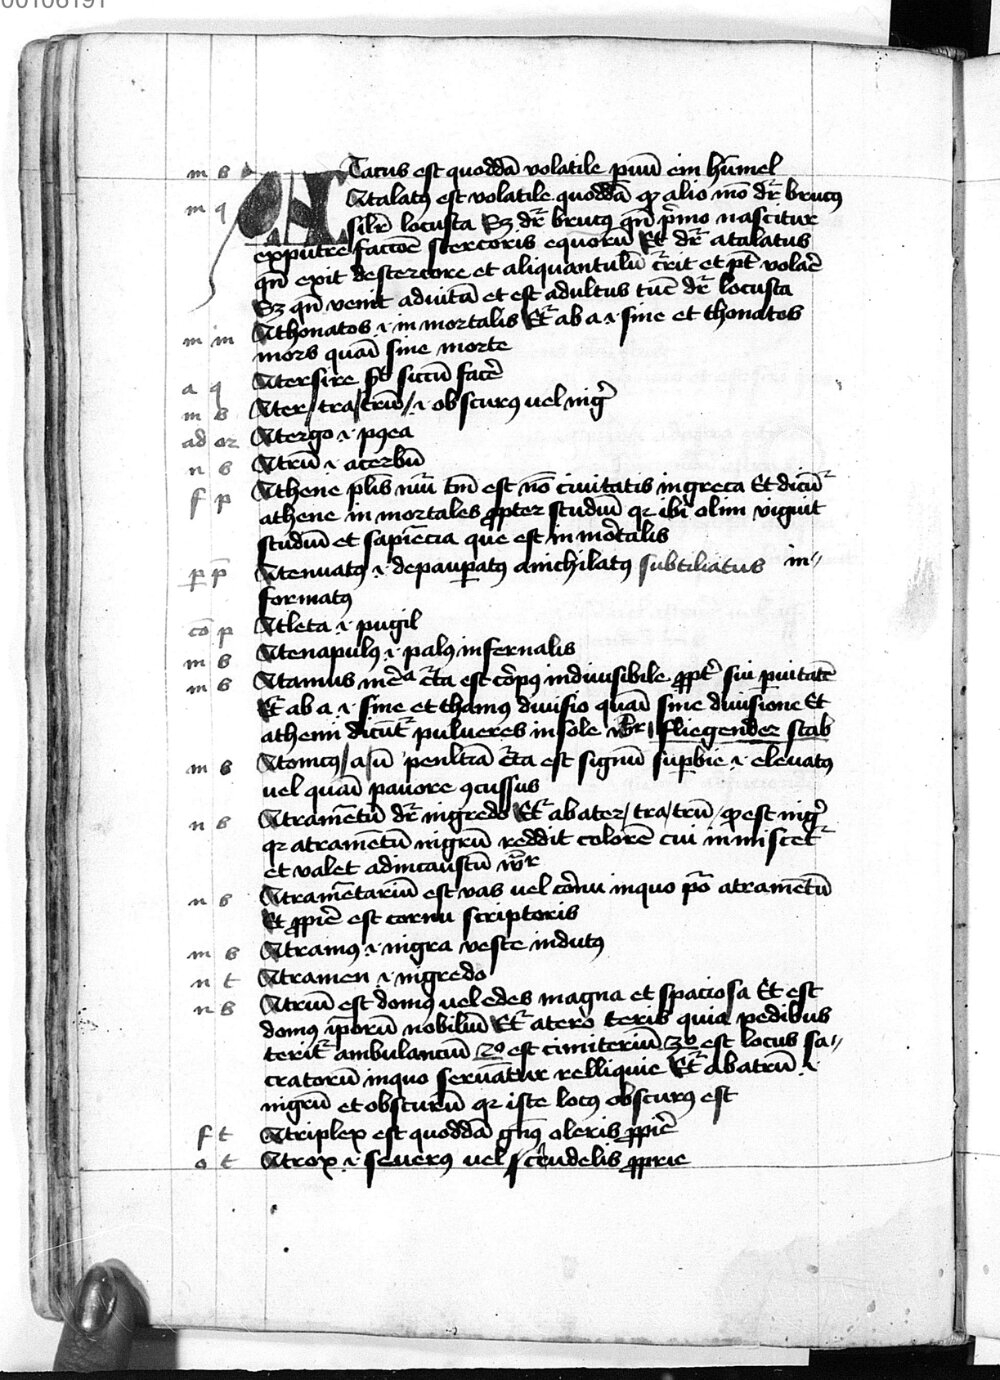 00106191
m b Atacus est quoddā volatile pruū em hūmel
m q Atalatꝰ est volatile quoddā qꝫ alio mō dr̄ brucꝰ
silr̄ locusta Sꝫ dr̄ brucꝰ qn̄ p̄mo nascitur
ex putrefaccōe stercoris equorū Et dr̄ atalatus
qn̄ exit de stercore et aliquantulū c̄rit et pt̄ volar̄e
Sꝫ qn̄ venit ad vitā et est adultus tūc dr̄ locusta
m m Athonatos .i. inmortalis Et̄ ab a .i. sine et thonatos
mors quasi sine morte
a q Atersire siccū facr̄e
m b Ater / tra / trū / .i. obscurꝰ uel nigr̄
ad or Atergo .i. postea
n b Atrū .i. acerbū
f p Athene pl̄is nūi tm̄ est nō civitatis in greca Et dicūt̄
athene inmortales ꝓpter studiū qꝛ ibi olim viguit
studiū et sapiēcia que est inmortalis
p p̄ Atenuatꝰ .i. depauꝑatꝰ anichilatꝰ subtiliatus in-
formatꝰ
cō p Atleta .i. pugil
m b Atenapulꝰ .i. palꝰ infernalis
m b Atamus mēa cr̄ta est corpꝰ indiuisibile ꝓpt̄ sui ꝑuitatē
Et̄ ab a .i. sine et thamꝰ diuisio quasi sine diuisione Et
athemi dicūt̄ pulueres in sole wlr̄ fliegender stab
m b Atomicꝰ / a / ū penltīa cr̄ta est signū suꝑbie .i. eleuatꝰ
uel quasi pauore ꝯcussus
n b Atramētū dr̄ nigredo Et̄ ab ater / tra / trū / qꝫ est nigr̄
qꝛ atramētū nigrū reddit colorē cui inmiscet̄
et valet ad incaustū wlr̄
n b Atramētariū est vas uel cornu in quo po̅ atramētū
Et ꝓprie est cornu scriptoris
m b Atramꝰ .i. nigra veste indutꝰ
n t Atramen .i. nigredo
n b Atriū est domꝰ uel edes magna et spaciosa Et est
domꝰ iporū nobiliū Et̄ atero teris quia pedibus
terit̄ ambulanciū 2º est cimiteriū 3º est locus sa-
cratorū in quo seruāntur relliquie Et̄ ab atrū .i.
nigrū et obscurū qꝛ iste locꝰ obscurꝰ est
f t Atriplex est quoddā genꝰ oleris ꝓprie
o t Atrox .i. seuerꝰ uel crudelis ꝓprie